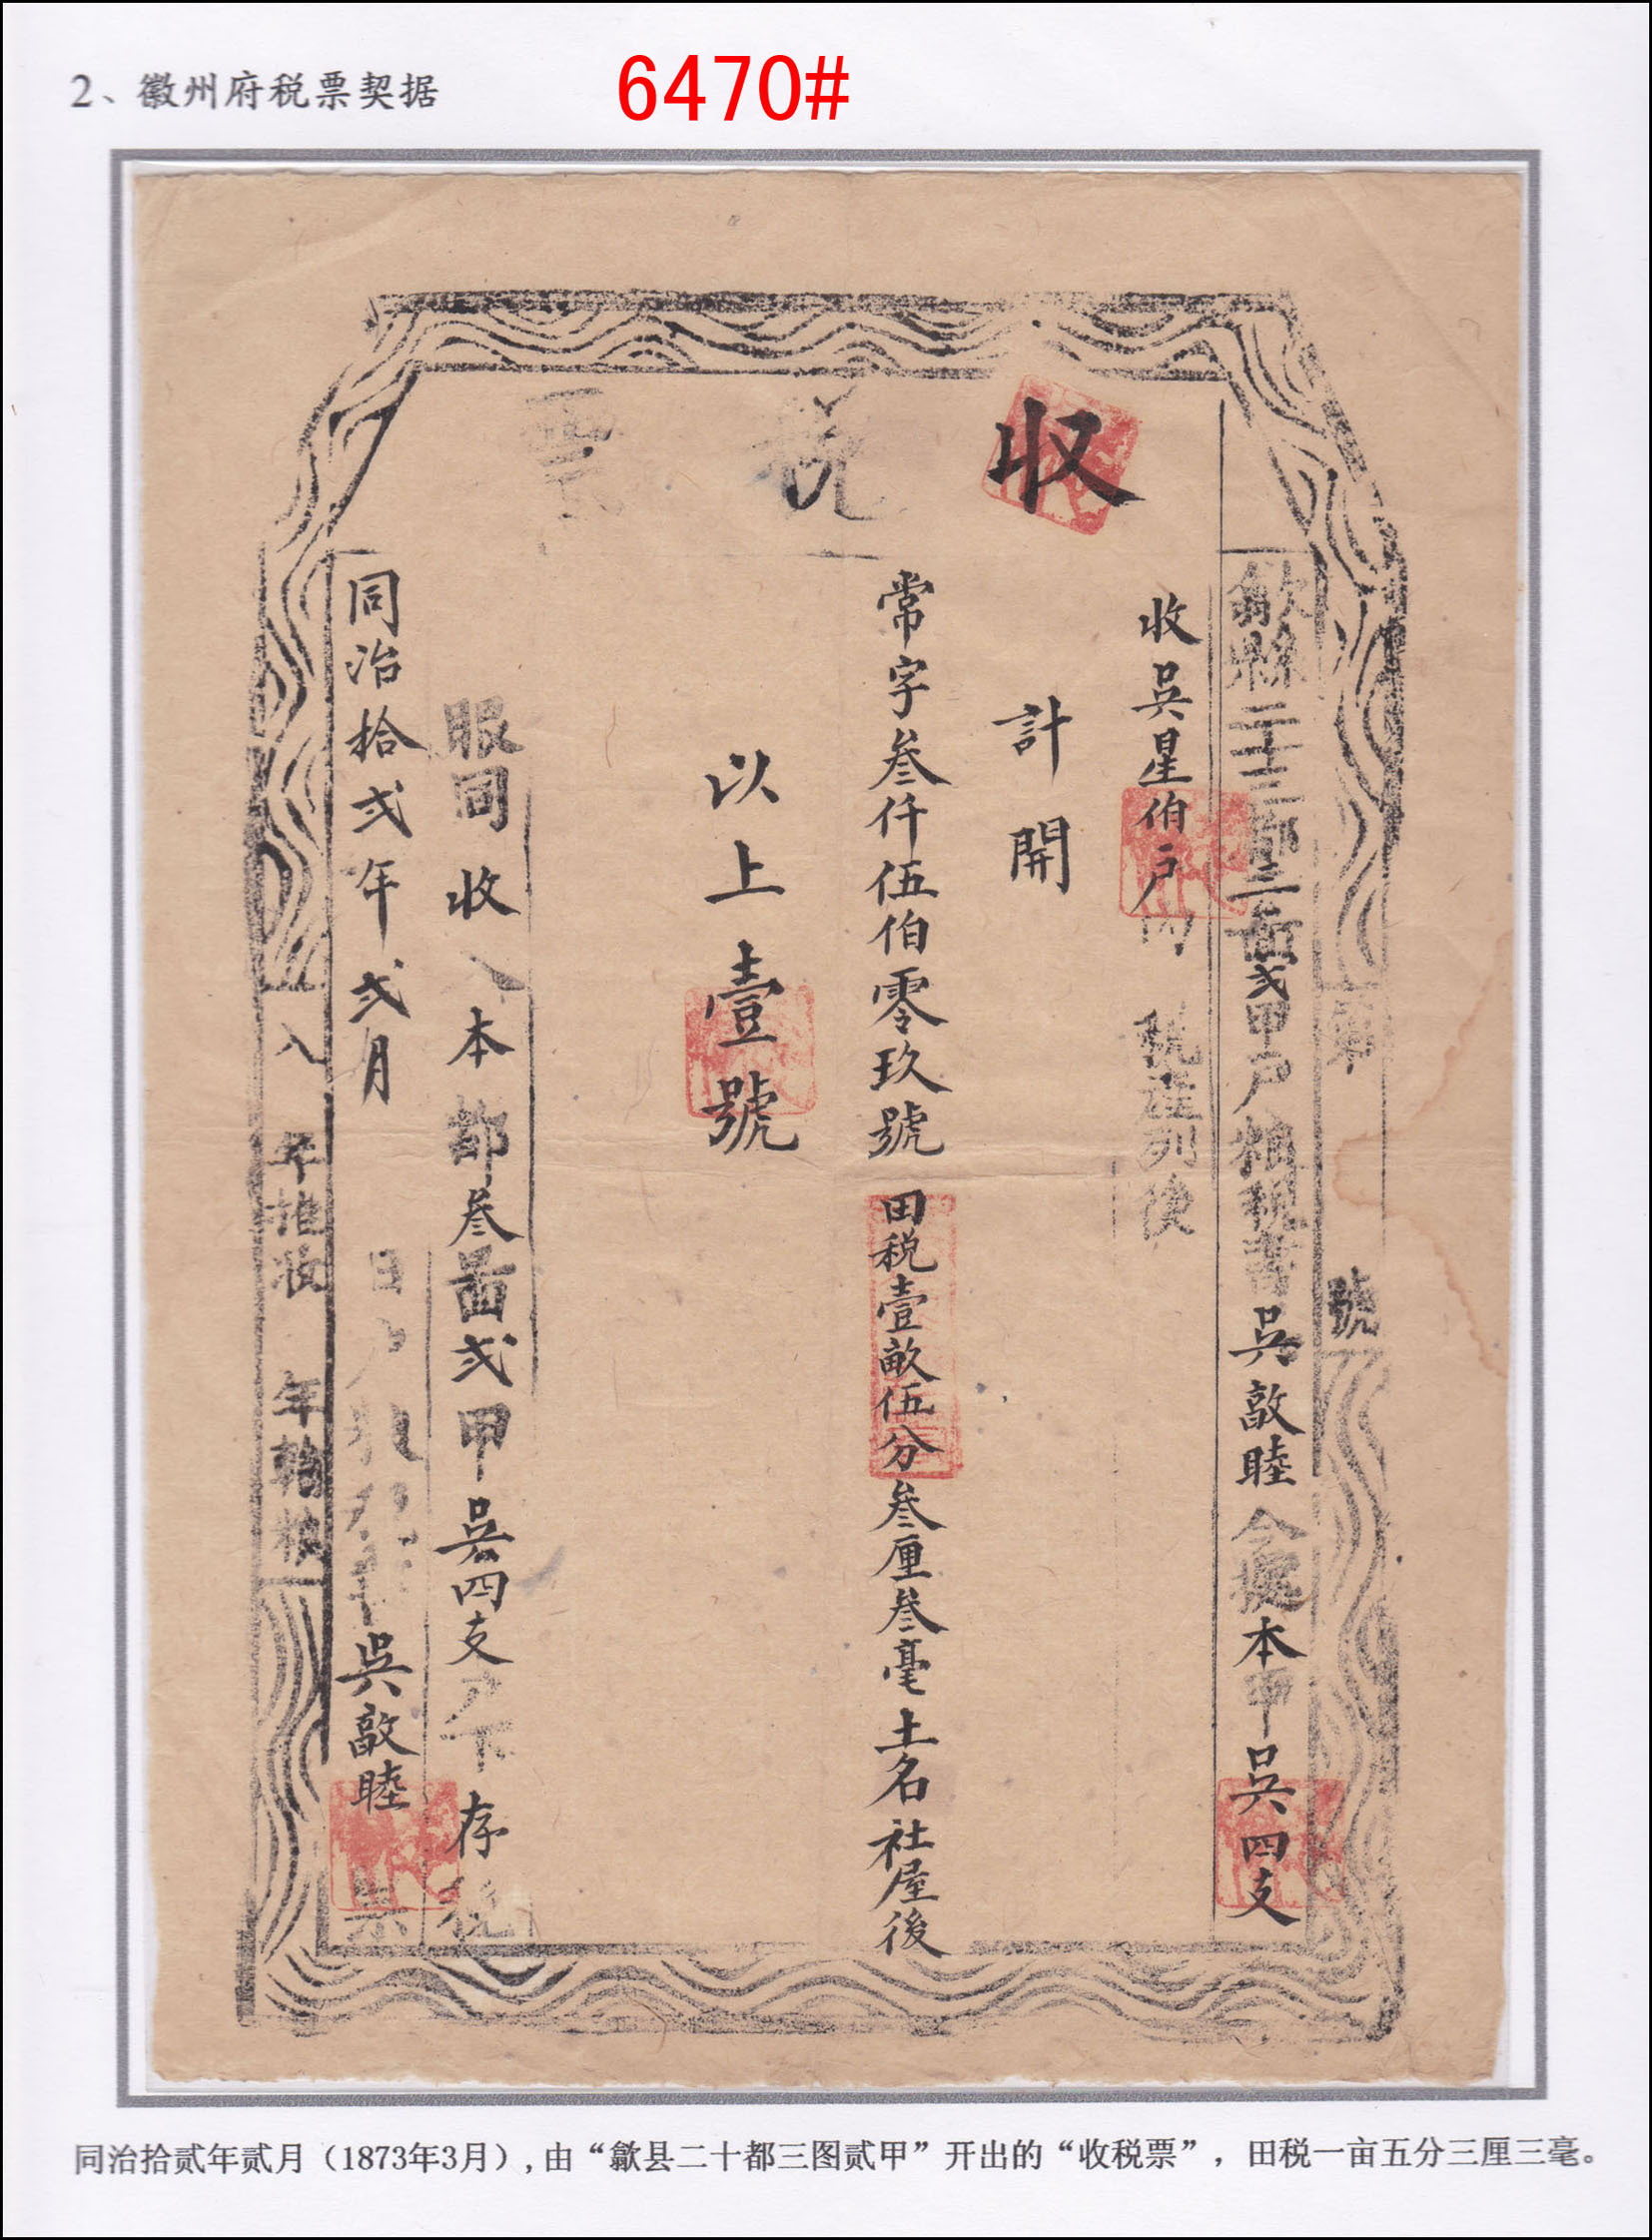 2、徽州府税票契据
6470#
收税票
第 號
歙縣二十三都三啚弍甲戶粮税書吳敦睦今據本甲吳四支
收吳星伯戶內 税産列後
計開
常字叁仟伍伯零玖號 田税壹畝伍分叁厘叁毫土名社屋後
以上壹號
眼同收入本都叁啚弍甲吳四支戶下存税
同治拾弍年弍月 日 吳敦睦票
八 年推收 年輸粮
同治拾贰年贰月（1873年3月）,由“歙县二十都三图贰甲”开出的“收税票”，田税一亩五分三厘三毫。